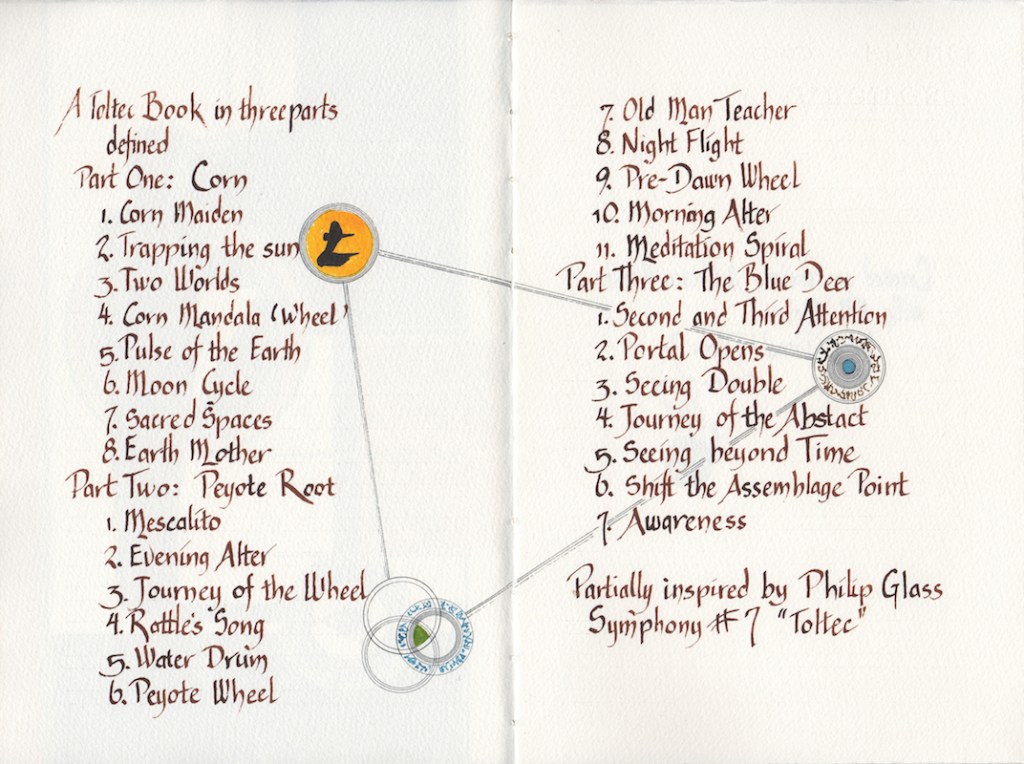 A Toltec Book in three parts
defined
Part One: Corn
1. Corn Maiden
2. Trapping the sun
3. Two Worlds
4. Corn Mandala (Wheel)
5. Pulse of the Earth
6. Moon Cycle
7. Sacred Spaces
8. Earth Mother
Part Two: Peyote Root
1. Mescalito
2. Evening Alter
3. Journey of the Wheel
4. Rattle's Song
5. Water Drum
6. Peyote Wheel
7. Old Man Teacher
8. Night Flight
9. Pre-Dawn Wheel
10. Morning Alter
11. Meditation Spiral
Part Three: The Blue Deer
1. Second and Third Attention
2. Portal Opens
3. Seeing Double
4. Journey of the Abstact
5. Seeing beyond Time
6. Shift the Assemblage Point
7. Awareness
Partially inspired by Philip Glass
Symphony # 7 "Toltec"